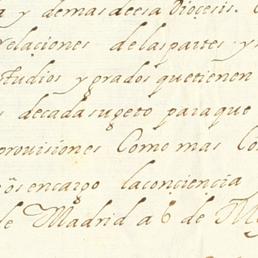 y demas deesa Diocesis.
relaciones delaspartes y
studios y grados quetienen
s decada sugeto para que
provisiones Como mas Co
os encargo laconciencia
de Madrid a 6 de M